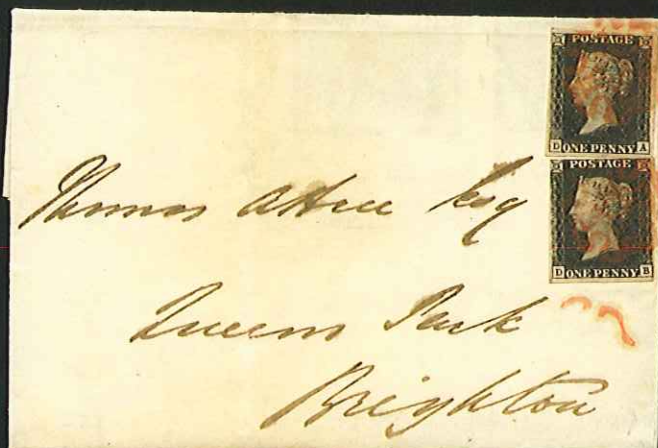 POSTAGE
D ONE PENNY A
POSTAGE
D ONE PENNY B
Thomas Attree Esq
Queens Park
Brighton